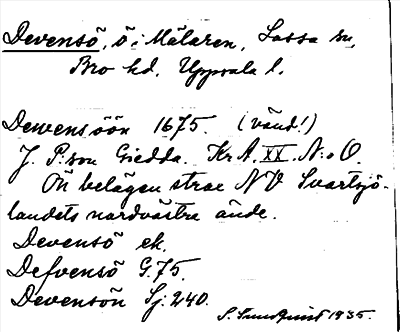 Devensö, ö i Mälaren, Lossa sn,
Bro hd, Uppsala l.
Dewensöön 1675. (vänd!)
J. P:son Giedda. Kr A. XX. N:o O.
Ön belägen strax NV Svartsjö-
landets nordvästra ände.
Devensö ek.
Defvensö G. 75.
Devensön Sj: 240.
S. Sundquist 1935.